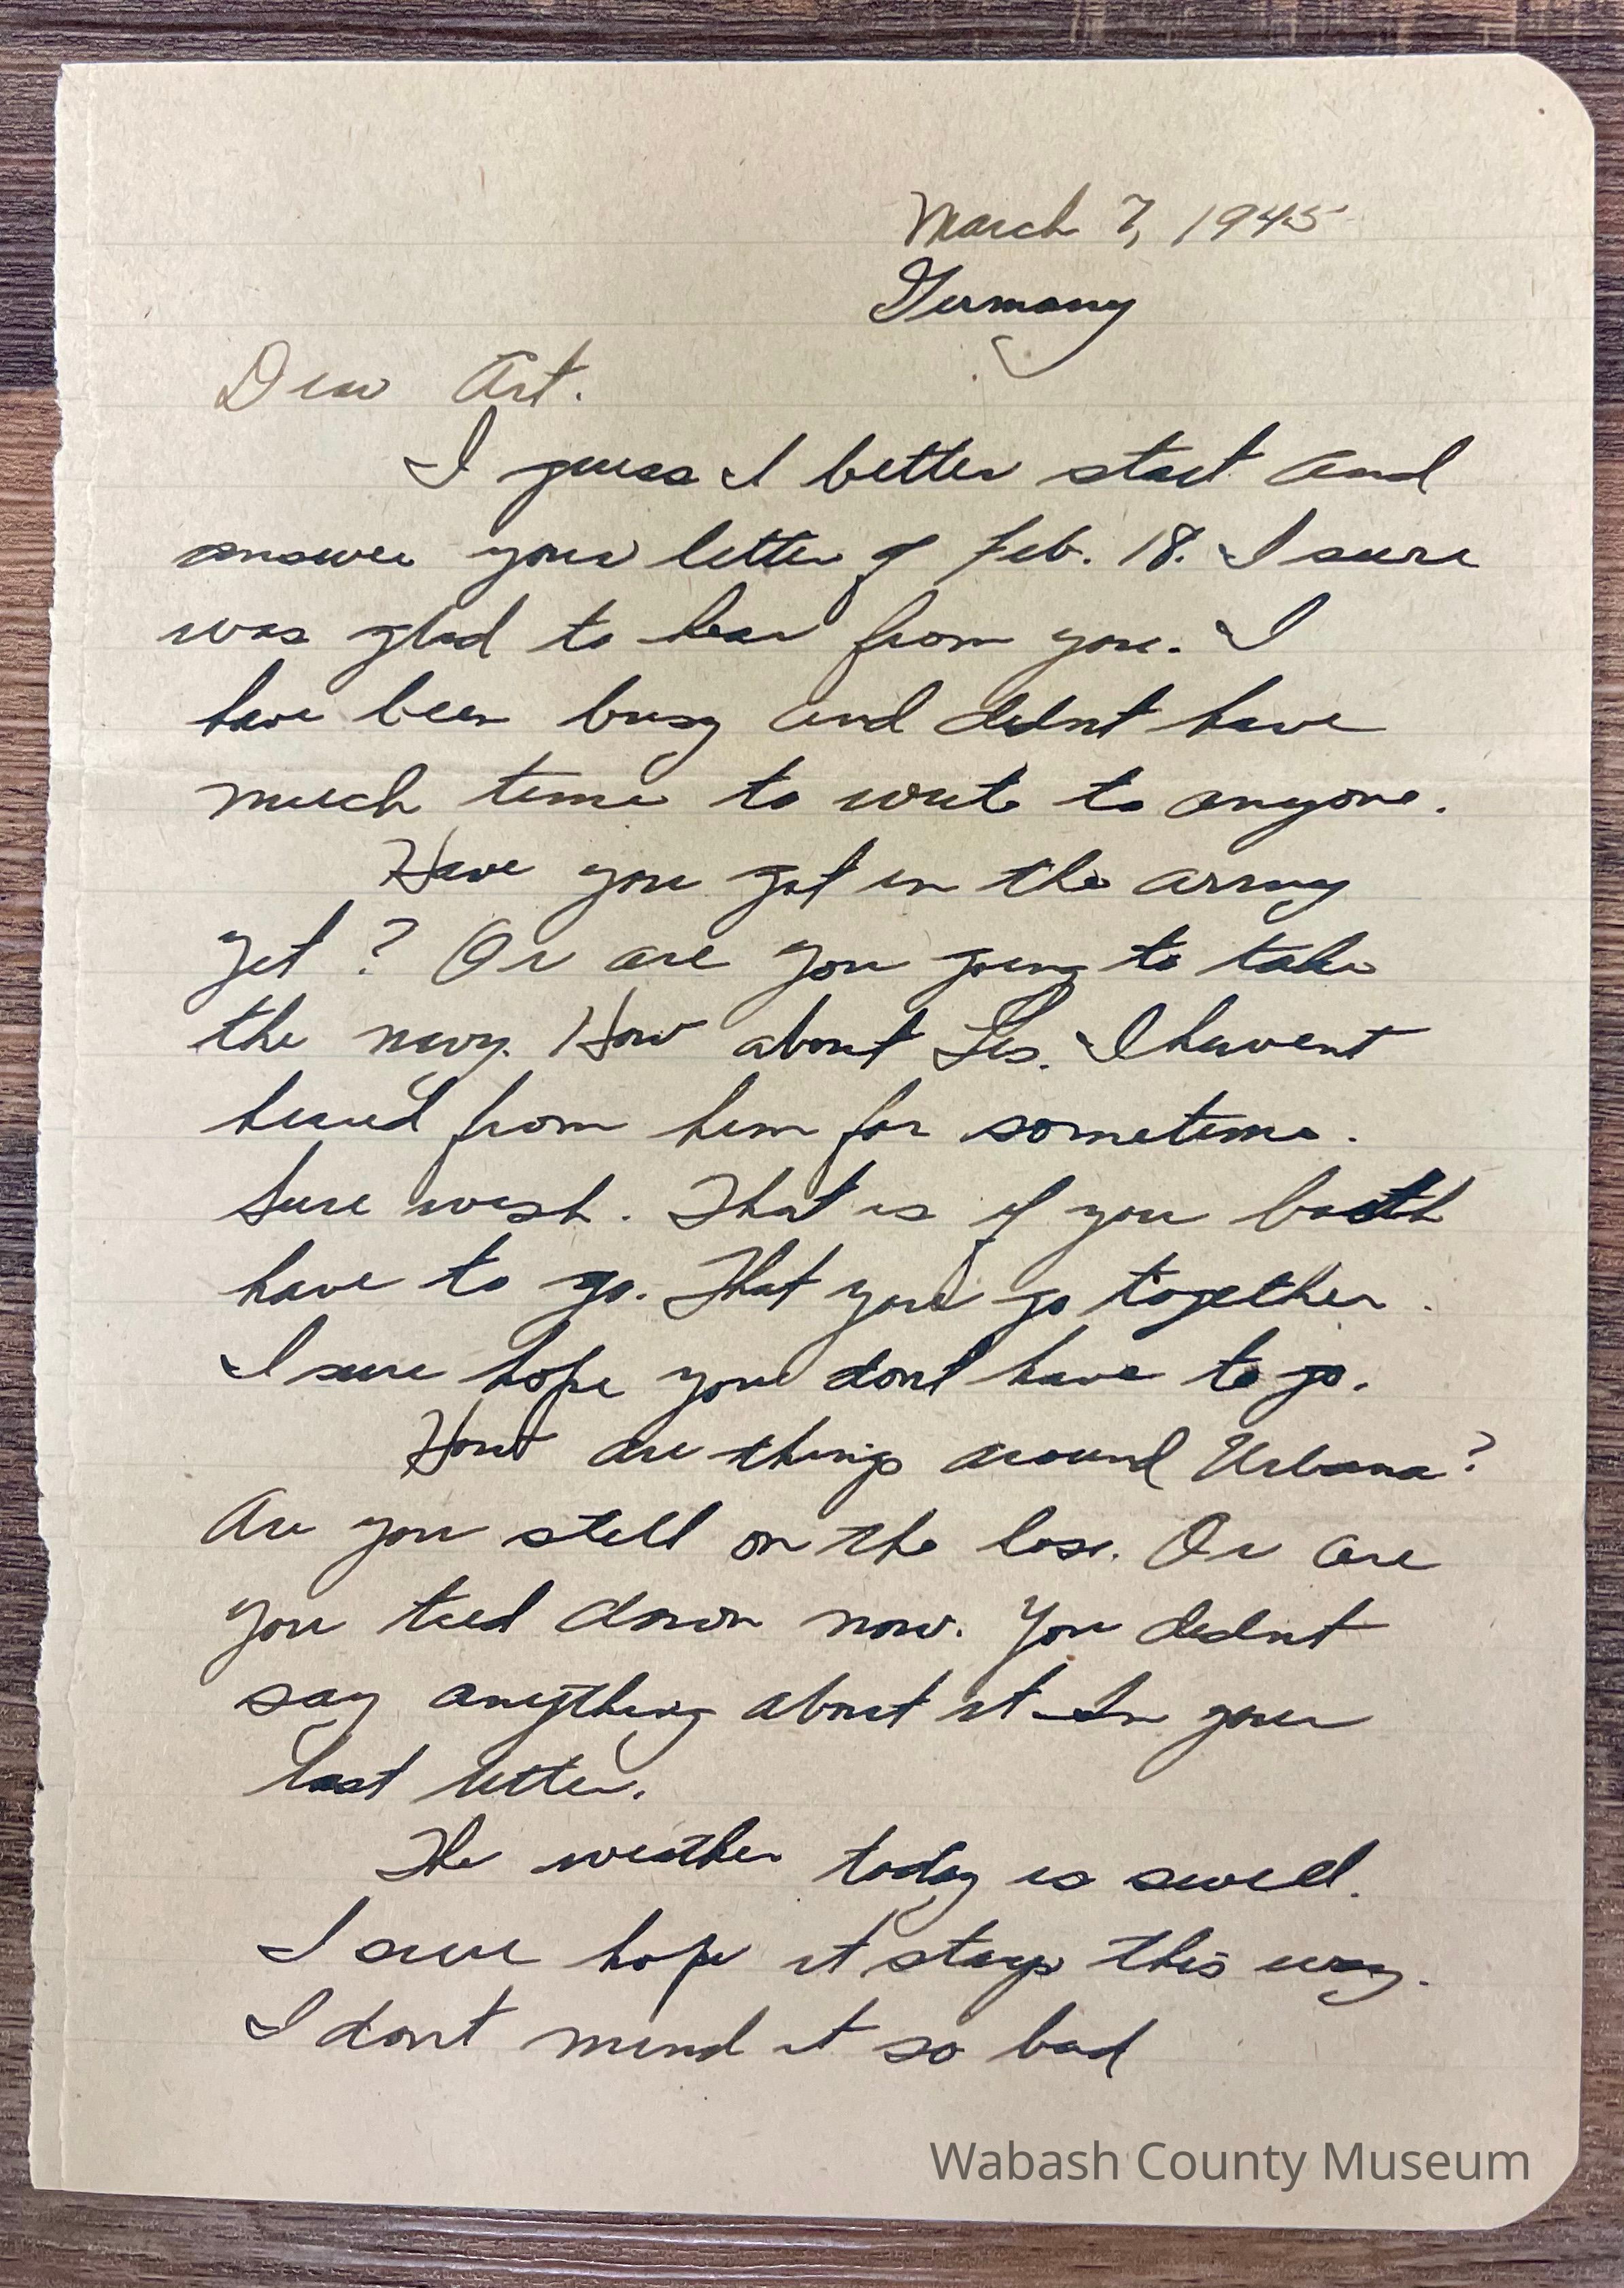 March 7, 1945
Germany
Dear Art.
I guess I better start and
answer your letter of Feb. 18. I sure
was glad to hear from you. I
have been busy and didnt have
much time to write to anyone.
Have you got in the army
yet? Or are you going to take
the navy. How about Les. I havent
heard from him for sometime.
Sure wish. That is if you both
have to go. That you go together.
I sure hope you dont have to go.
How are things around Urbana?
Are you still on the lose. Or are
you tied down now. You didnt
say anything about it In your
last letter.
The weather today is swell.
I sure hope it stays this way.
I dont mind it so bad
Wabash County Museum